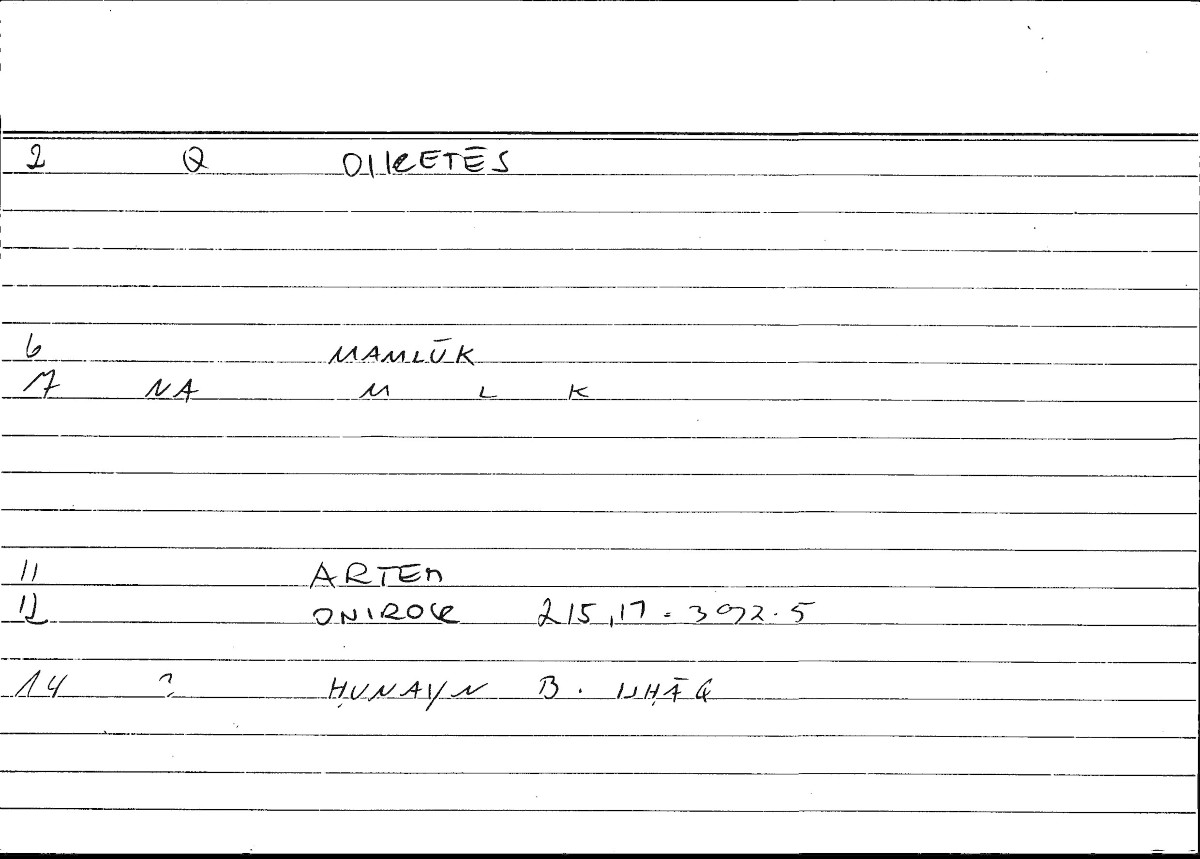 2 Q OIKETĒS
6 MAMLŪK
7 NA M L K
11 ARTEM
12 ONIROCR 215,17 = 392.5
14 ? ḤUNAYN B. ISḤĀQ